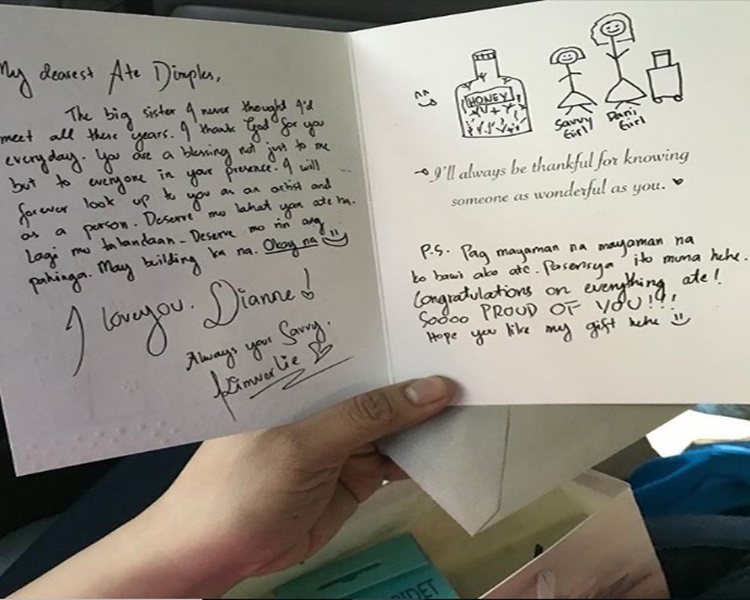 My dearest Ate Dimples,
The big sister I never thought I'd
meet all these years. I thank God for you
everyday. You are a blessing not just to me
but to everyone in your presence. I will
forever look up to you as an artist and
as a person. Deserve mo lahat yan ate ha.
Lagi mo talandaan - Deserve mo rin ang
pahinga. May building ka na. Okay na
I love you. Dianne!
Always your Savvy.
Kimverlie
HONEY
Savvy
Girl
Dani
Girl
I'll always be thankful for knowing
someone as wonderful as you.
P.S. Pag mayaman na mayaman na
ko bawi ako ate. Pasensya ito muna hehe.
Congratulations on everything ate!
Soooo PROUD OF YOU!!!
Hope you like my gift hehe